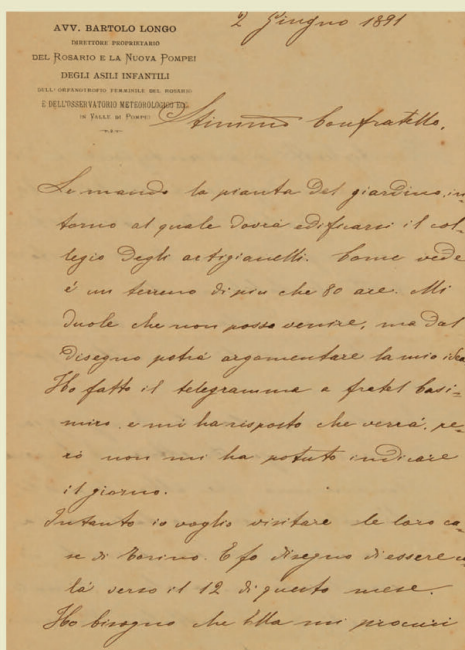 2 Giugno 1891
AVV. BARTOLO LONGO
DIRETTORE PROPRIETARIO
DEL ROSARIO E LA NUOVA POMPEI
DEGLI ASILI INFANTILI
DELL'ORFANOTROFIO FEMMINILE DEL ROSARIO
E DELL'OSSERVATORIO METEOROLOGICO ECC.
IN VALLE DI POMPEI
Stimmo Confratello,
Le mando la pianta del giardino, in-
torno al quale dovrà edificarsi il col-
legio degli artigianelli. Come vede
è un terreno di più che 80 are. Mi
duole che non posso venire, ma dal
disegno potrà argomentare la mio idea
Ho fatto il telegramma a fratel Casi-
miro, e mi ha risposto che verrà, pe-
rò non mi ha potuto indicare
il giorno.
Intanto io voglio visitare le loro ca-
se di Torino. E fo disegno di essere co
là verso il 12 di questo mese.
Ho bisogno che Ella mi procuri